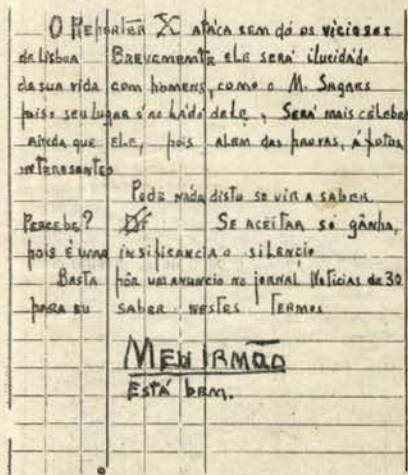 O Reporter X ataca sem dó os viciosos
de Lisboa Brevemente ele será ilucidado
da sua vida com homens, como o M. Sagres
pois o seu lugar é ao lado dele, Será mais celebre
ainda que ele, pois alem das provas, á fotos
interesantes
Pode nada disto se vir a saber.
Percebe? Se aceitar só gânha,
pois é uma insificancia o silencio
Basta pôr um anuncio no jornal Noticias de 30
para eu saber nestes termos
Meu irmão
Está bem.